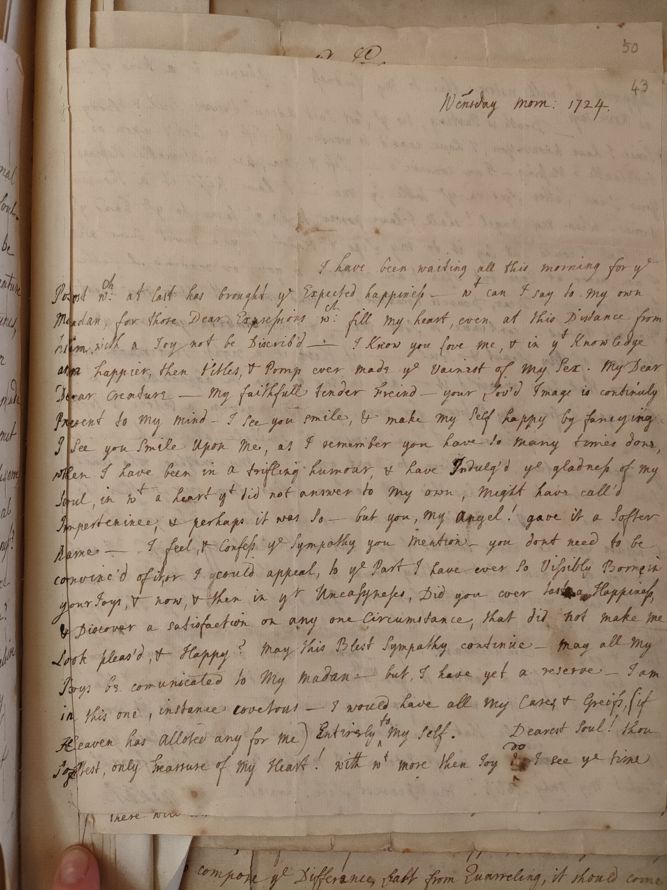 50
43
Wensday morn: 1724
I have been waiting all this morning for ye
Posst wch: at last has brought ye Expected happiness — wt can I say to my own
Madan, for those Dear Expressions wch: fill my heart, even at this Distance from
him, with a Joy not be Discrib'd — I know you love me, & in yt Knowledge
am happier, then titles, & Pomp ever made ye Vainest of my Sex. My Dear
Dear Creature — my faithfull tender freind — your Lov'd Image is continuly
Present to my mind — I see you smile, & make my Self happy by fancying
I see you Smile Upon me, as I remember you have so many times done,
when I have been in a trifling humour, & have Indulg'd ye gladness of my
Soul, in wt a heart yt did not answer to my own, might have call'd
Impertinince, & perhaps it was so — but you, my Angel! gave it a Softer
Name — I feel, & Confess ye Sympathy you mention — you dont need to be
convinc'd of it, for I could appeal, to ye Part I have ever so Vissibly Borne in
your Joys, & now, & then in yr Uneassynesses, Did you ever Happiness,
& Discover a satisfaction on any one Circumstance, that did not make me
Look pleas'd, & Happy? may this Blest Sympathy continue — may all my
Joys be comunicated to my madan — but, I have yet a reserve — I am
in this one, instance covetous — I would have all my Cares, & Greifs, (if
Heaven has Allotted any for me) Entirely to my Self. Dearest Soul! thou
only treasure of my Heart! with wt more then Joy do I see ye time
there
compose ye Difference, fast from Quarreling, it should come